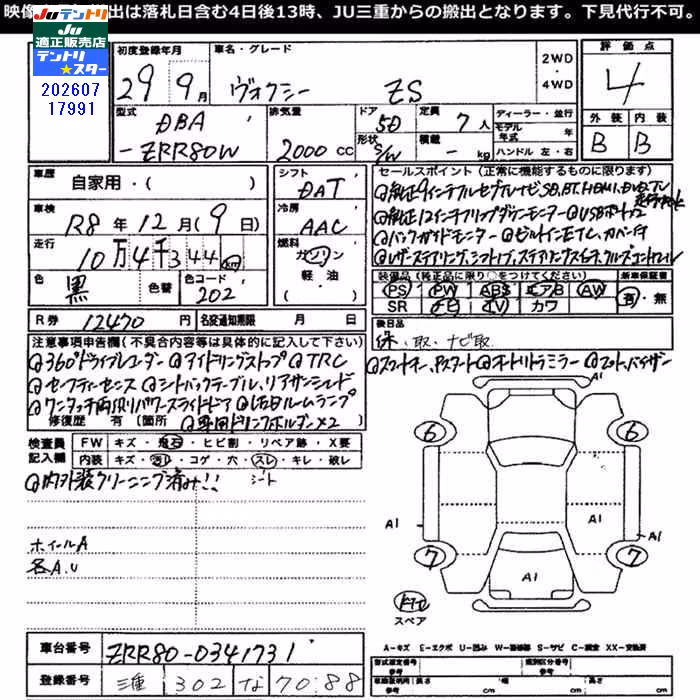 映像 出は落札日含む4日後13時、JU三重からの搬出となります。下見代行不可。
JUテントリ
JU
適正販売店
テントリ★スター
202607
17991
初度登録年月 車名・グレード 2WD・4WD 評価点
29年 9月 ヴォクシー ZS 4
型式 排気量 ドア 定員 ディーラー・並行 外装 内装
DBA-ZRR80W 2000cc 5D 7人 モデル年式 年 B B
形状 S/W 積載 - kg ハンドル 左・右
車歴 自家用・( ) シフト DAT
セールスポイント(正常に機能するものに限ります)
車検 R8年12月(9日) 冷房 AAC
走行 10万4千344km 燃料 ガソリン 軽・油
色 黒 色替 色コード 202
R券 12470円 名変通知期限 月 日
@純正9インチフルセグナビSD,BT,HDMI,DVD,TV
@純正12インチフリップダウンモニター @USBポート2
@バックガイドモニター @ビルトインETC、カバー付
@レザーステアリング、シフトノブ、ステアリングスイッチ、クルーズコントロール
装備品(純正品に限り○をつけてください) 新車保証書
PS PW ABS エアB AW 有・無
SR ナビ TV カワ
後日品
保、取、ナビ取
注意事項申告欄(不具合内容等は具体的に記入して下さい)
@スマートキー、Pスタート @オートリトラミラー @マット、バイザー
@360°ドライブレコーダー @アイドリングストップ @TRC
@セーフティーセンス @シートバックテーブル、リアサンシェード
@ワンタッチ両側パワースライドドア @LEDルームランプ
修復歴 有(箇所 @専用ドリンクホルダー×2
検査員記入欄 FW キズ・飛石・ヒビ割・リペア跡・X要
内装 キズ・汚レ・コゲ・穴・スレ・キレ・破レ
@内外装クリーニング済み!! シート
ホイールA
各A.U
A1
6 6
A1 A1 A1
7 7
A1
スペア
A-キズ E-エクボ U-凹み W-補修跡 S-サビ C-腐食 XX-交換済
車台番号 ZRR80-0341731
登録番号 三重 302 な 70-88
型式指定番号 類別区分番号
車輌証明欄 長さ cm 幅 cm 高さ cm